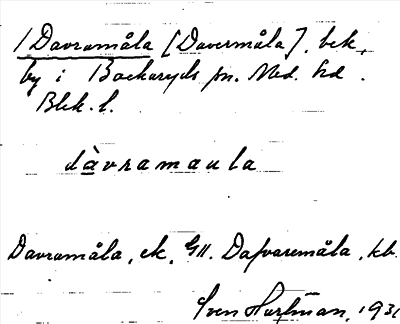 1 Davramåla [Davermåla], bek.
by i Backaryds sn. Med. hd.
Blek. l.
dàvramaula
Davramåla, ek, GII. Dafvaremåla, kb.
Sven Hartman, 1931